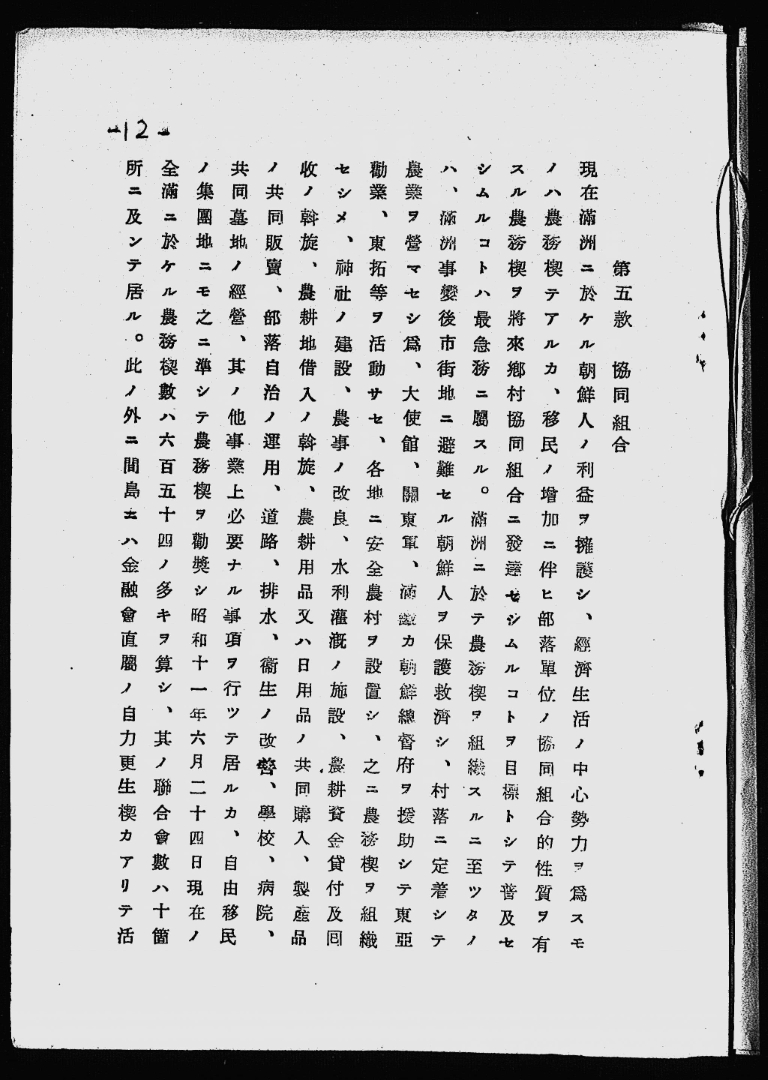 -12-
第五款　協同組合
現在滿洲ニ於ケル朝鮮人ノ利益ヲ擁護シ、經濟生活ノ中心勢力ヲ爲スモ
ノハ農務楔テアルカ、移民ノ增加ニ伴ヒ部落單位ノ協同組合的性質ヲ有
スル農務楔ヲ將來鄕村協同組合ニ發達セシムルコトヲ目標トシテ普及セ
シムルコトハ最急務ニ屬スル。滿洲ニ於テ農務楔ヲ組織スルニ至ツタノ
ハ、滿洲事變後市街地ニ避難セル朝鮮人ヲ保護救濟シ、村落ニ定着シテ
農業ヲ營マセシ爲、大使館、關東軍、滿鐵カ朝鮮總督府ヲ援助シテ東亞
勸業、東拓等ヲ活動サセ、各地ニ安全農村ヲ設置シ、之ニ農務楔ヲ組織
セシメ、神社ノ建設、農事ノ改良、水利灌漑ノ施設、農耕資金貸付及囘
收ノ斡旋、農耕地借入ノ斡旋、農耕用品又ハ日用品ノ共同購入、製產品
ノ共同販賣、部落自治ノ運用、道路、排水、衞生ノ改善、學校、病院、
共同墓地ノ經營、其ノ他事業上必要ナル事項ヲ行ツテ居ルカ、自由移民
ノ集團地ニモ之ニ準シテ農務楔ヲ勸獎シ昭和十一年六月二十四日現在ノ
全滿ニ於ケル農務楔數ハ六百五十四ノ多キヲ算シ、其ノ聯合會數ハ十箇
所ニ及ンテ居ル。此ノ外ニ間島ニハ金融會直屬ノ自力更生楔カアリテ活